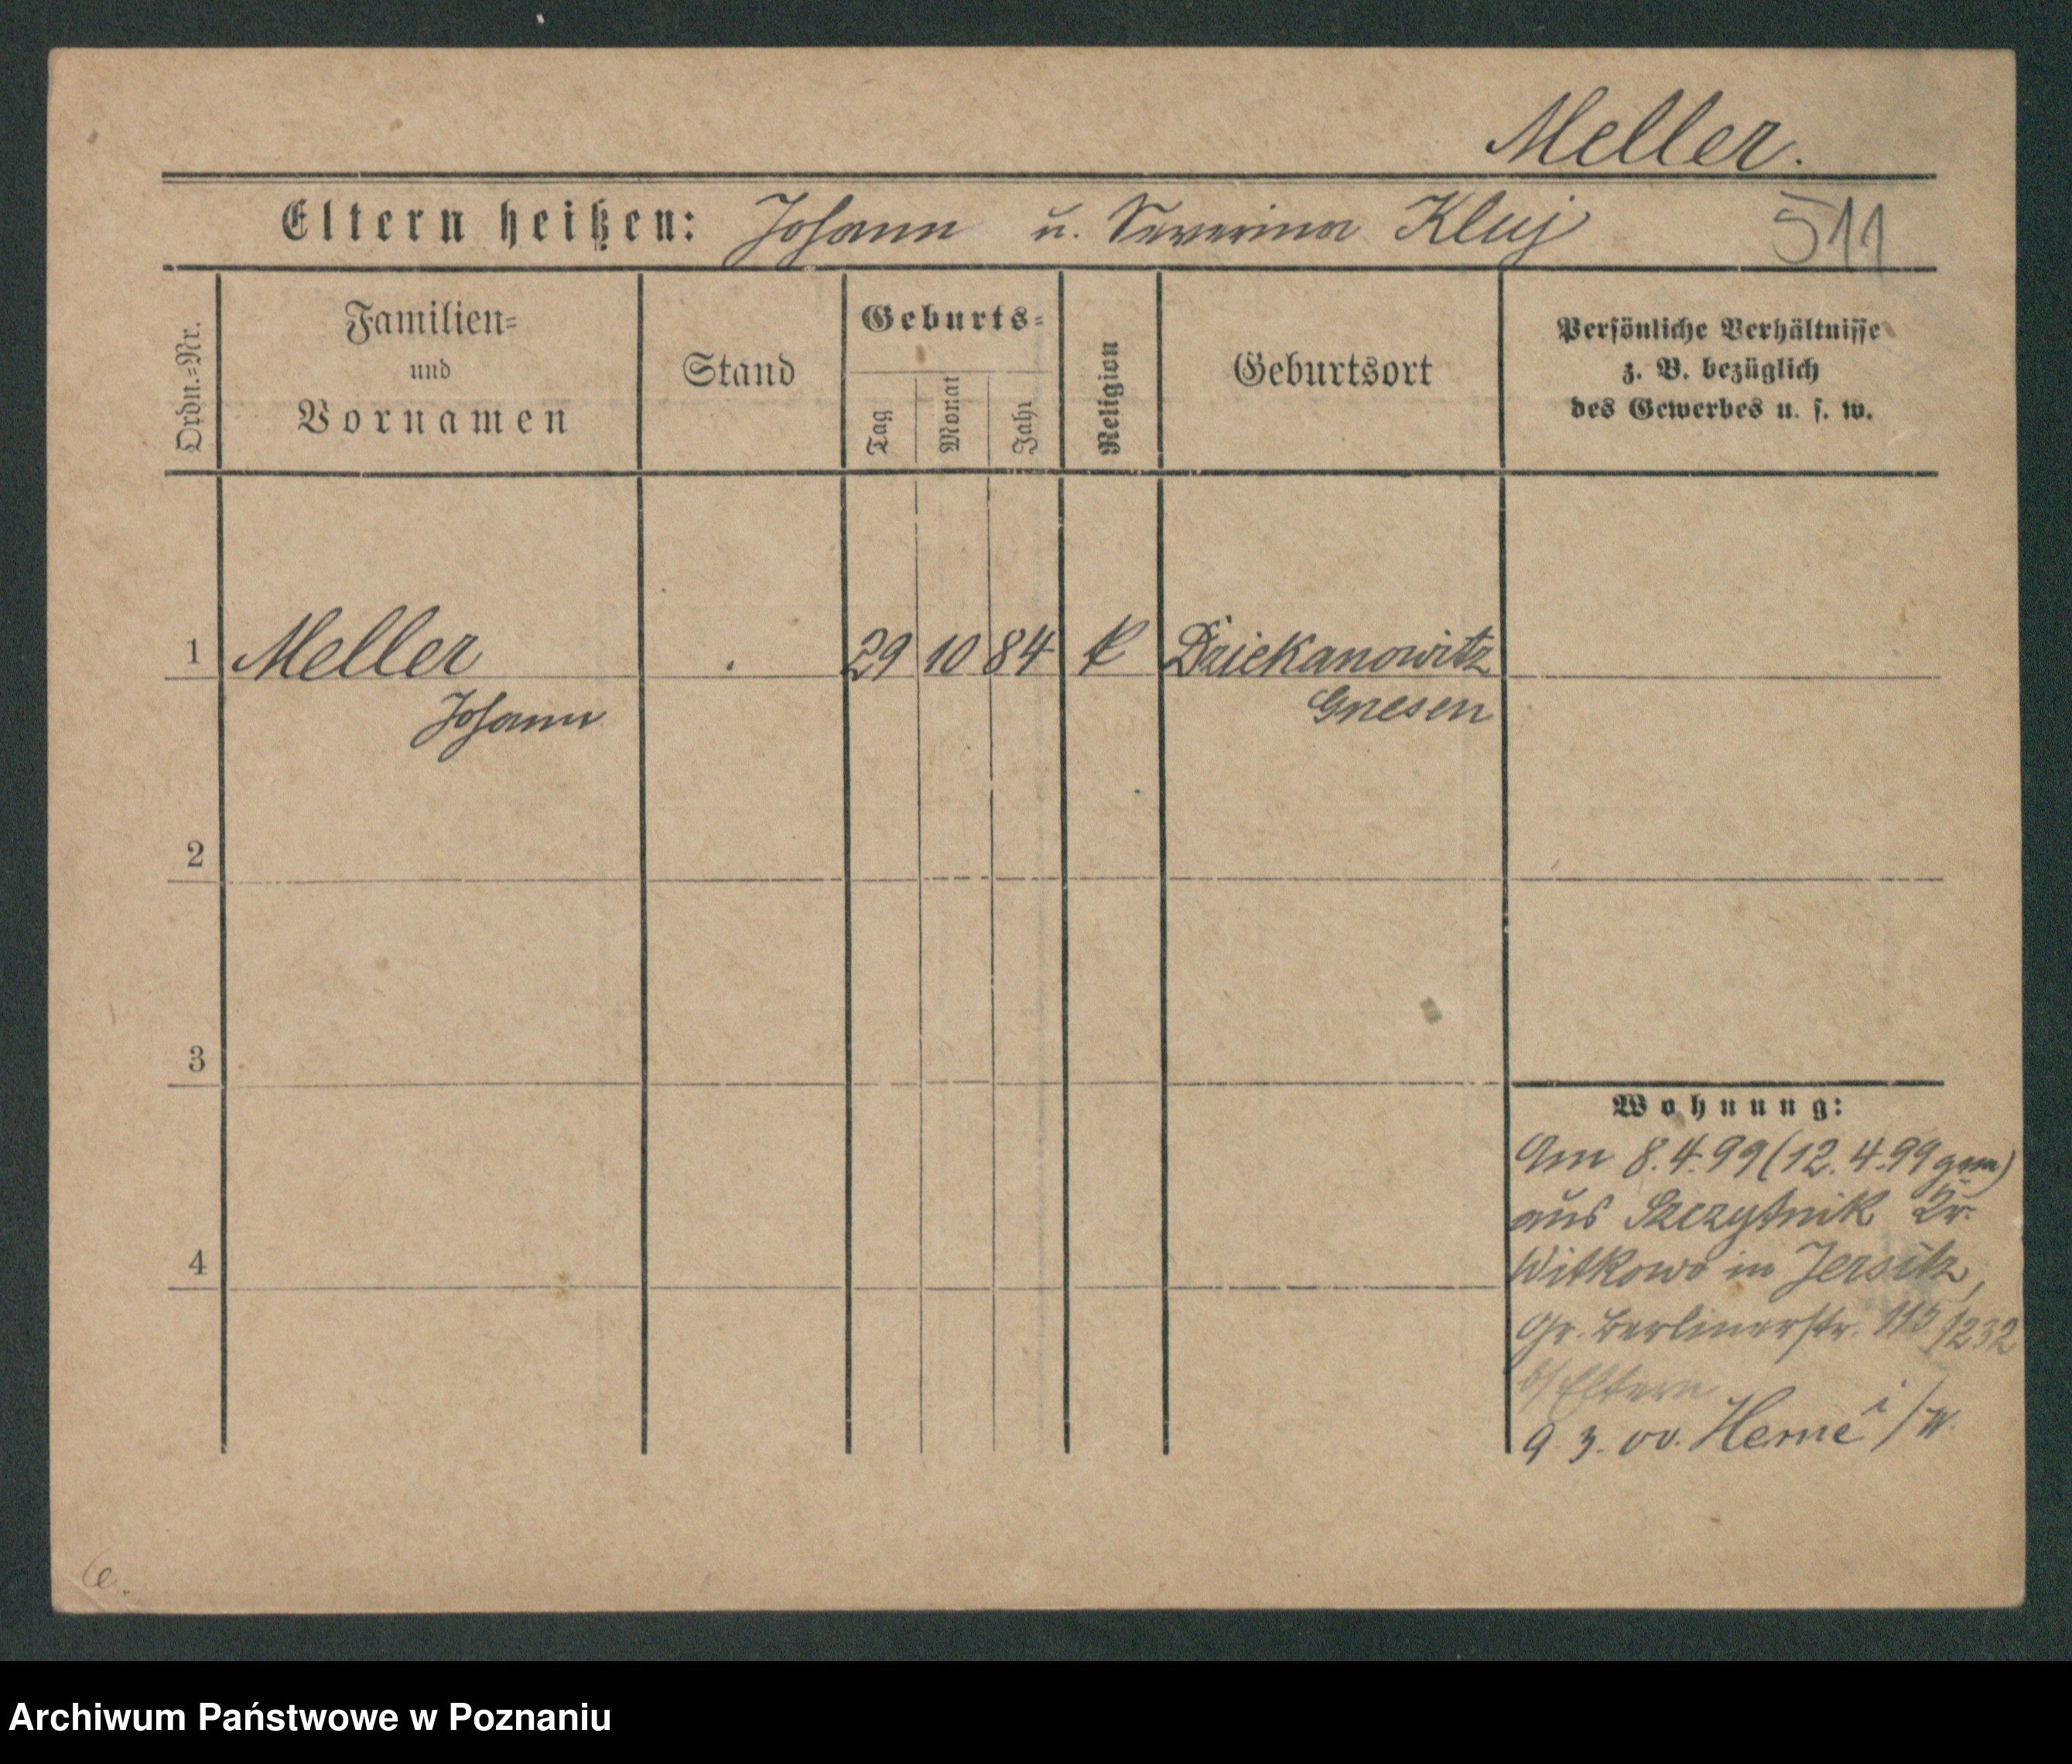 Meller.
Eltern heißen: Johann u. Severina Kluj 511
Ordn.=Nr.
Familien=
und
Vornamen
Stand
Geburts=
Tag
Monat
Jahr
Religion
Geburtsort
Persönliche Verhältnisse
z. B. bezüglich
des Gewerbes u. s. w.
1 Meller . 29 10 84 k Dziekanowitz
Johann Gnesen
2
3
4
Wohnung:
Am 8.4.99 (12.4.99 gem)
aus Szczytnik Kr.
Witkowo in Jersitz,
Gr. Berlinerstr. 115/1232
b/Eltern
9. 3. 00. Herne i/W.
Archiwum Państwowe w Poznaniu